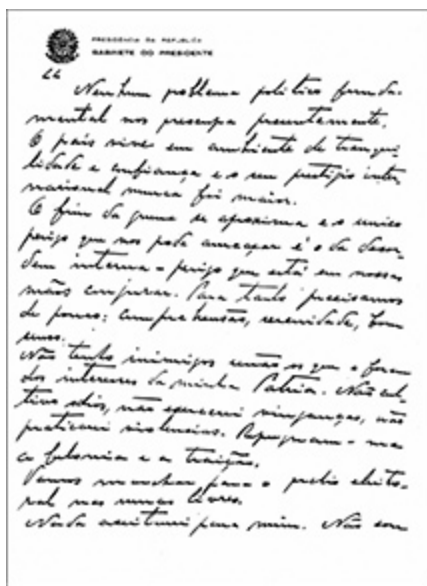 PRESIDENCIA DA REPUBLICA
GABINETE DO PRESIDENTE
"Nenhum problema politico funda-
mental nos preocupa presentemente.
O país vive em ambiente de tranqui-
lidade e confiança e o seu prestigio inter
nacional nunca foi maior.
O fim da guerra se aproxima e o unico
perigo que nos pode ameaçar é o da desor-
dem interna - perigo que está em nossas
mãos conjurar. Para tanto precisamos
de pouco: comprehensão, serenidade, bom
senso.
Não tenho inimigos senão os que o foram
dos interesses da minha Patria. Não cul
tivo odios, não exerci vinganças, não
pratiquei violencias. Repugnam-me
a felonia e a traição.
Vamos marchar para o pleito eleito-
ral nas urnas livres.
Nada aceitarei para mim. Não sou